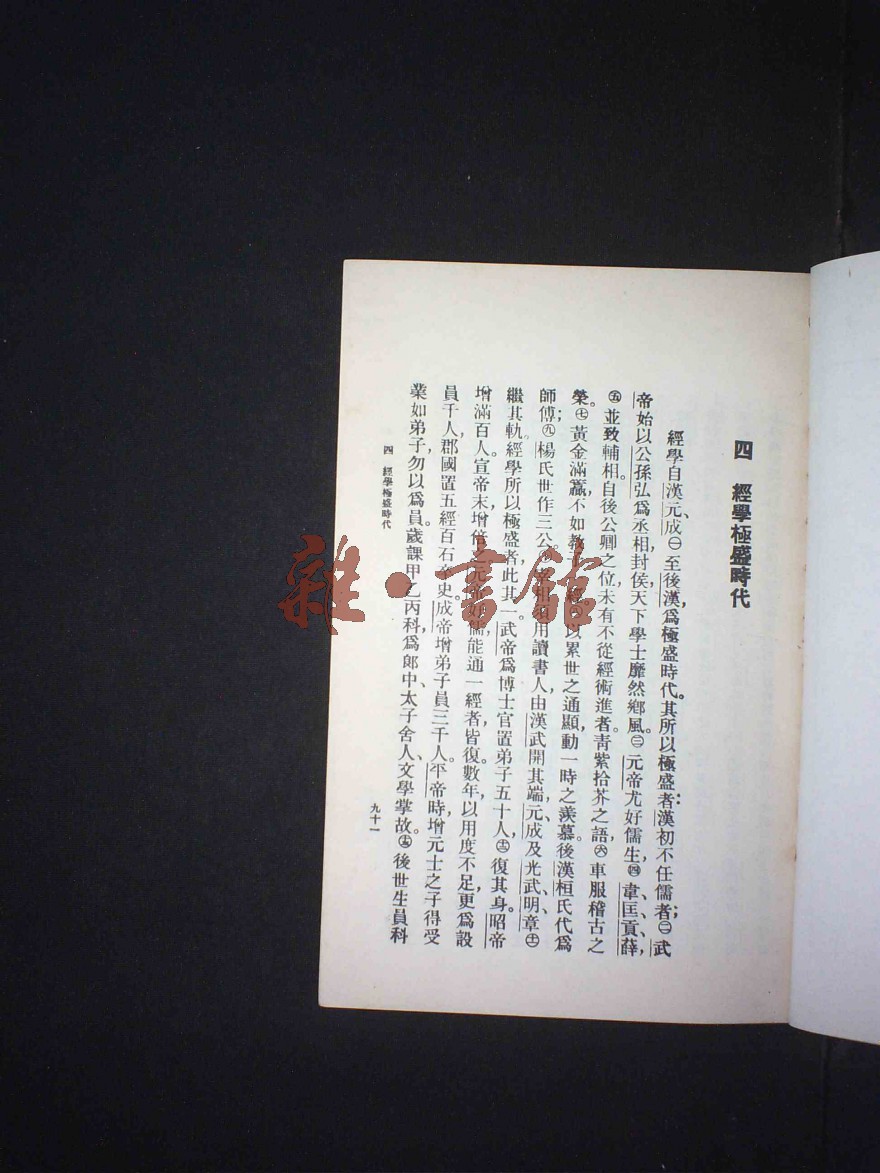 四 經學極盛時代
經學自漢元、成㊀至後漢，爲極盛時代。其所以極盛者：漢初不任儒者；㊁武
帝始以公孫弘爲丞相封侯，天下學士靡然鄉風。㊂元帝尤好儒生，㊃韋、匡、貢、薛，
㊄並致輔相。自後公卿之位，未有不從經術進者，青紫拾芥之語，㊅車服稽古之
榮。㊆黃金滿籯，不如教子 以累世之通顯，動一時之羨慕。後漢桓氏代爲
師傅；㊈楊氏世作三公。 用讀書人，由漢武開其端，元、成及光武、明、章㊉㊀
繼其軌。經學所以極盛者，此其一。武帝爲博士官置弟子五十人，復其身。昭帝
增滿百人。宣帝末，增倍之。元帝 儒，能通一經者皆復。數年，以用度不足，更爲設
員千人，郡國置五經百石 史。成帝增弟子員三千人。平帝時，增元士之子得受
業如弟子，勿以爲員。歲課甲乙丙科，爲郎中、太子舍人、文學掌故。後世生員科
四 經學極盛時代
九十一
雜·書館